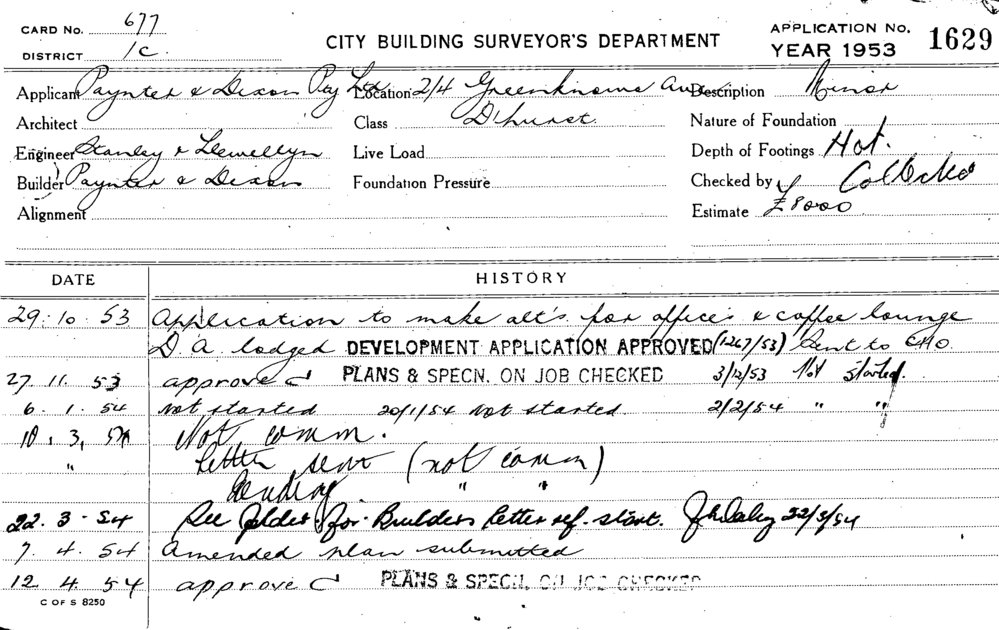 CARD No. 677
DISTRICT 1C
CITY BUILDING SURVEYOR'S DEPARTMENT
APPLICATION No. 1629
YEAR 1953
Applicant Paynter & Dixon Pty Ltd Location 2/4 Greenknowe Ave Description Minor
Architect Class D'hurst. Nature of Foundation
Engineer Stanley & Llewellyn Live Load Depth of Footings Hot.
Builder Paynter & Dixon Foundation Pressure Checked by
Alignment Estimate £8000
DATE HISTORY
29.10.53 Application to make alt's for offices & coffee lounge
D.A. lodged DEVELOPMENT APPLICATION APPROVED (1267/53) Sent to CHO.
27.11.53 approved PLANS & SPECN. ON JOB CHECKED 3/12/53 Not started
6.1.54 Not started 20/1/54 Not started 2/2/54 " "
10.3.54 Not comm.
" Letter sent (not comm)
Pending " "
22.3.54 See folder for Builders letter ref. start. 22/3/54
7.4.54 Amended plan submitted
12.4.54 approved PLANS & SPECN. ON JOB CHECKED
C OF S 8250